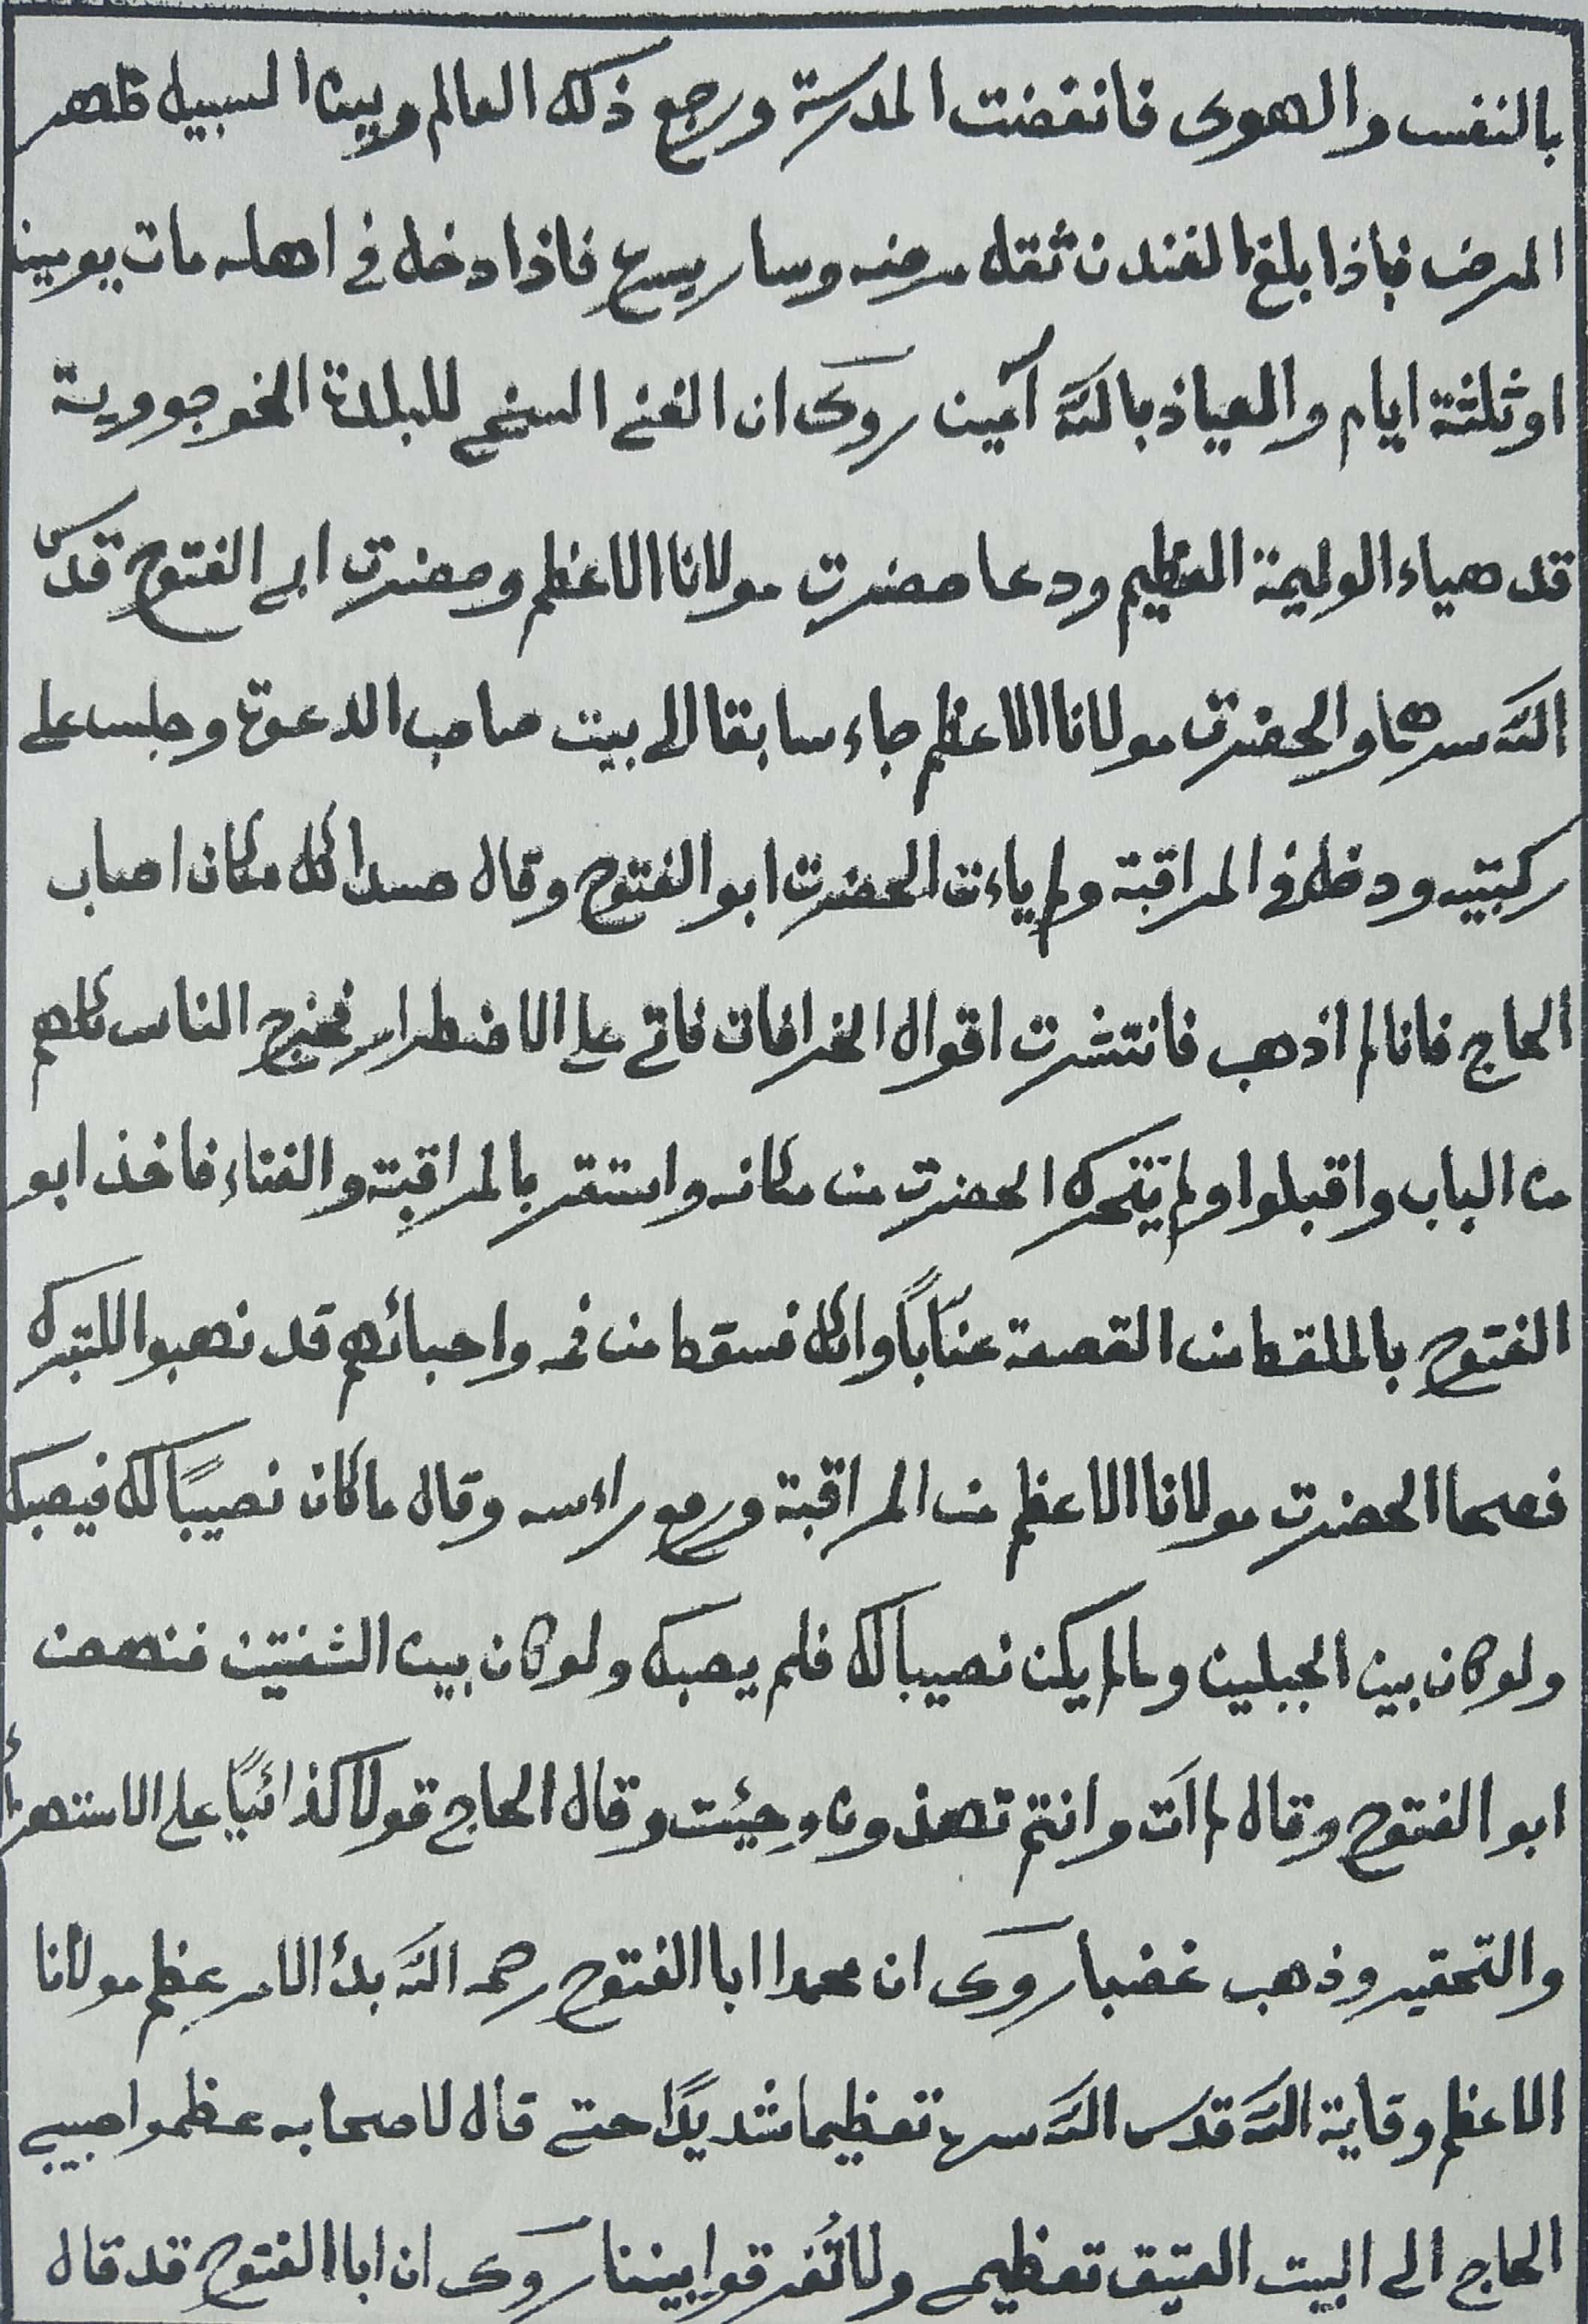 بالنفس والهوى فانقضت المدرسة ورجع ذلك العالم وبين السبيل ظهر
المرض فاذا بلغ الفندن ثقل مرضه وسار يسرع فاذا دخل في اهله مات يومين
او ثلثة ايام والعياذ بالله آمين روى ان الغني السخي للبلدة الخوجوورية
قد هياء الوليمة العظيم ودعا حضرت مولانا الاعظم وحضرت ابي الفتوح قدّس
الله سرهما والحضرت مولانا الاعظم جاء سابقا الى بيت صاحب الدعوة وجلس على
ركبتيه ودخل في المراقبة ولم ياءت الحضرت ابو الفتوح وقال حسدا كل مكان اصاب
الحاج فانا لم اذهب فانتشرت اقوال الخرافات فاتى على الاضطرار فخرج الناس كلهم
من الباب واقبلوا ولم يتحرك الحضرت من مكانه واستقر بالمراقبة والفناء فاخذ ابو
الفتوح بالملقط من القصعة عنّاباً واكل فسقط من فمه واحبائهم قد نهبوا للتبرك
فصحا الحضرت مولانا الاعظم من المراقبة ورفع راءسه وقال ما كان نصيبًا لك فيصبك
ولو كان بين الجبلين وما لم يكن نصيبا لك فلم يصبك ولو كان بين الشفتين فنهض
ابو الفتوح وقال لم آت وانتم تهذون وجئت وقال الحاج قولا كذائيًا على الاستهزأ
والتحقير وذهب غضبا روى ان محمدا ابا الفتوح رحمه الله بدأ الامر عظم مولانا
الاعظم وقاية الله قدس الله سره تعظيما شديدًا حتى قال لاصحابه عظموا حبيبي
الحاج الى البيت العتيق تعظيمي ولا تُفرقوا بيننا روى ان ابا الفتوح قد قال